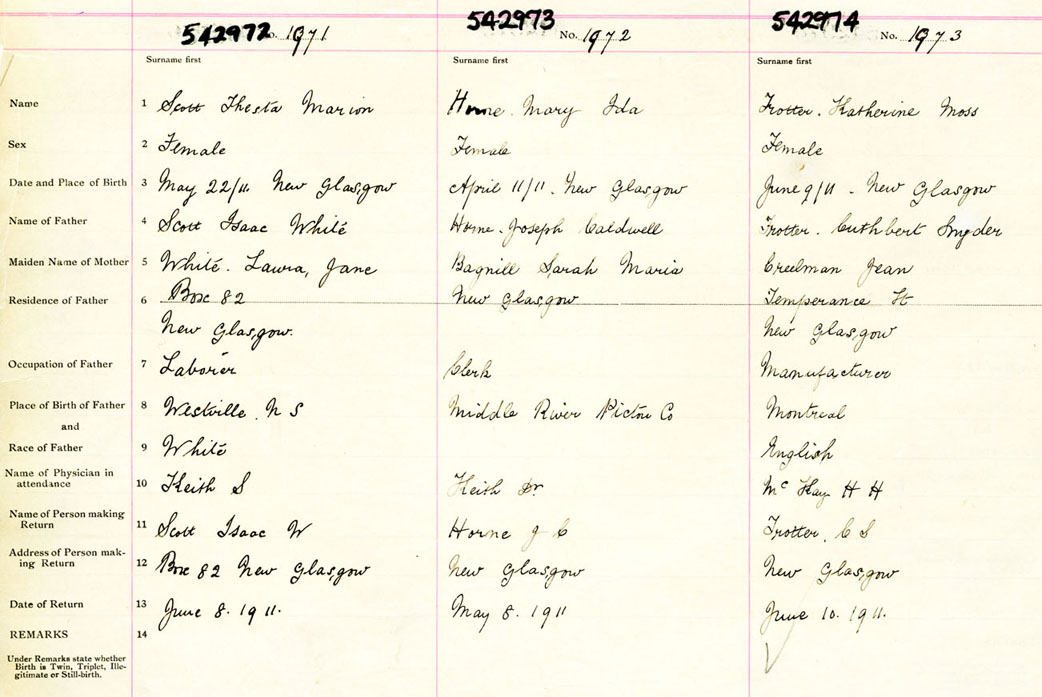 542972 542973 542974
No. 1971 No. 1972 No. 1973
Surname first Surname first Surname first
Name 1 Scott Thesta Marion Horne. Mary Ida Trotter. Katherine Moss
Sex 2 Female Female Female
Date and Place of Birth 3 May 22/11 New Glasgow April 11/11. New Glasgow June 9/11. New Glasgow
Name of Father 4 Scott Isaac White Horne. Joseph Caldwell Trotter. Cuthbert Snyder
Maiden Name of Mother 5 White. Laura, Jane Bagnill Sarah Maria Creelman Jean
Residence of Father 6 Box 82 New Glasgow Temperance St
New Glasgow. New Glasgow
Occupation of Father 7 Laborer Clerk Manufacturer
Place of Birth of Father 8 Westville. N S Middle River Pictou Co Montreal
and
Race of Father 9 White English
Name of Physician in
attendance 10 Keith S Keith Dr McKay H H
Name of Person making
Return 11 Scott Isaac W Horne J C Trotter. C S
Address of Person mak-
ing Return 12 Box 82 New Glasgow New Glasgow New Glasgow
Date of Return 13 June 8. 1911. May 8. 1911 June 10. 1911.
REMARKS 14
Under Remarks state whether
Birth is Twin, Triplet, Ille-
gitimate or Still-birth.